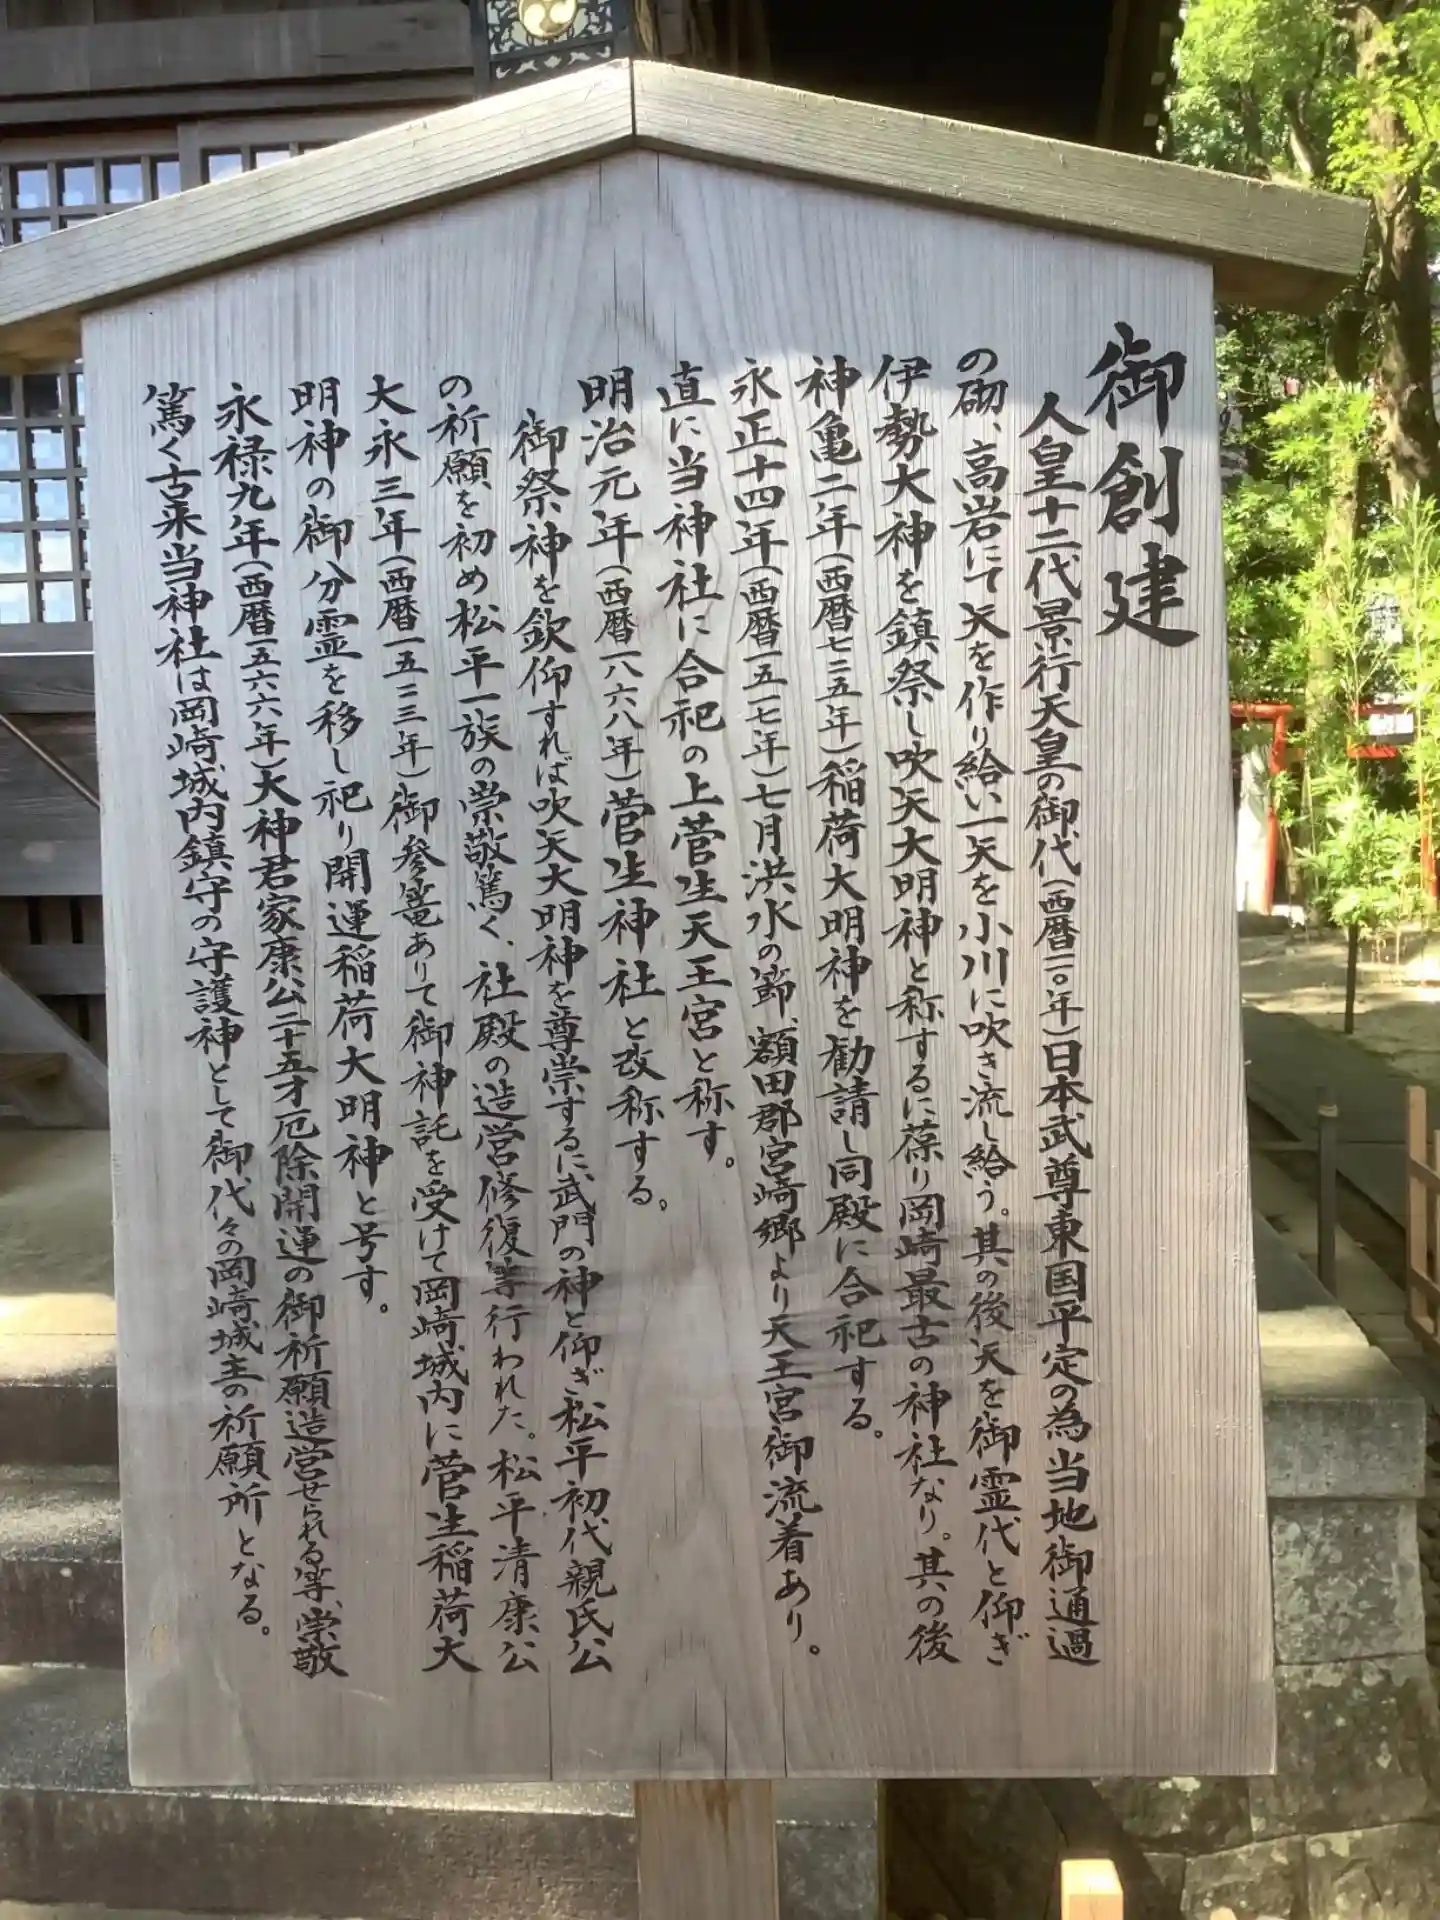 御創建
人皇十二代景行天皇の御代(西暦一一〇年)日本武尊東国平定の為当地御通過
の砌、高岩にて矢を作り給い一矢を小川に吹き流し給う。其の後矢を御霊代と仰ぎ
伊勢大神を鎮祭し吹矢大明神と称するに葆り岡崎最古の神社なり。其の後
神亀二年(西暦七二五年)稲荷大明神を勧請し同殿に合祀する。
永正十四年(西暦一五一七年)七月洪水の節、額田郡宮崎郷より天王宮御流着あり。
直に当神社に合祀の上菅生天王宮と称す。
明治元年(西暦一八六八年)菅生神社と改称する。
御祭神を欽仰すれば吹矢大明神を尊崇するに、武門の神と仰ぎ松平初代親氏公
の祈願を初め松平一族の崇敬篤く、社殿の造営修復等行われた。松平清康公
大永三年(西暦一五二三年)御参篭ありて御神託を受けて岡崎城内に菅生稲荷大
明神の御分霊を移し祀り開運稲荷大明神と号す。
永禄九年(西暦一五六六年)大神君家康公二十五才厄除開運の御祈願造営せられる等、崇敬
篤く古来当神社は岡崎城内鎮守の守護神として御代々の岡崎城主の祈願所となる。